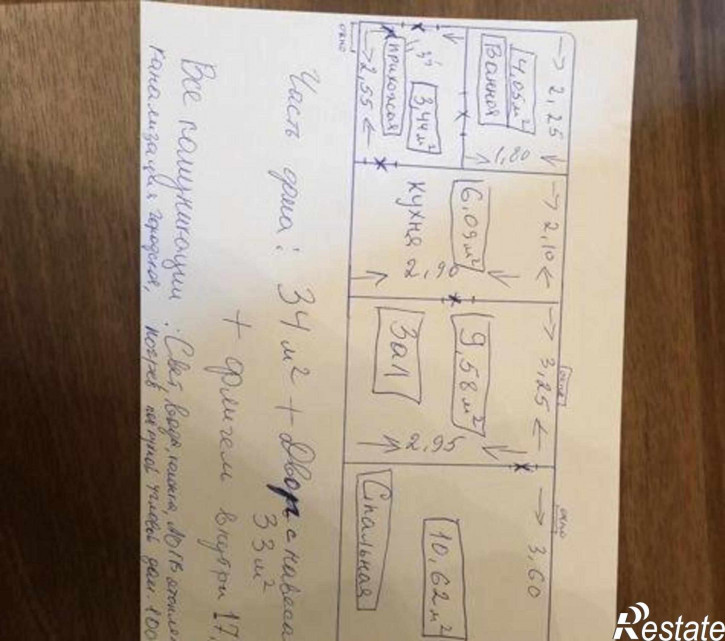 → 2,25 ←
4,05м²
Ванная
1,80
3,44м²
прихожая
→ 2,55 ←
окно
→ 2,10 ←
6,09м²
кухня
2,90
→ 3,25 ←
окно
9,58м²
Зал
2,95
→ 3,60
окно
10,62м²
Спальная
Часть дома: 34м² + Двор с навеса
33м²
+ флигель внутри 17.
Все комуникации: Свет, вода,
канализация городская,
Restate